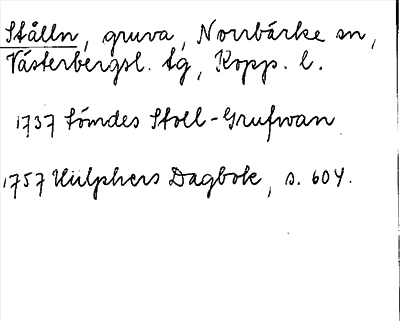 Stålln, gruva, Norrbärke sn,
Västerbergsl. tg, Kopp. l.
1737 Stoll-Grufwan
1757 Hülphers Dagbok, s. 604.